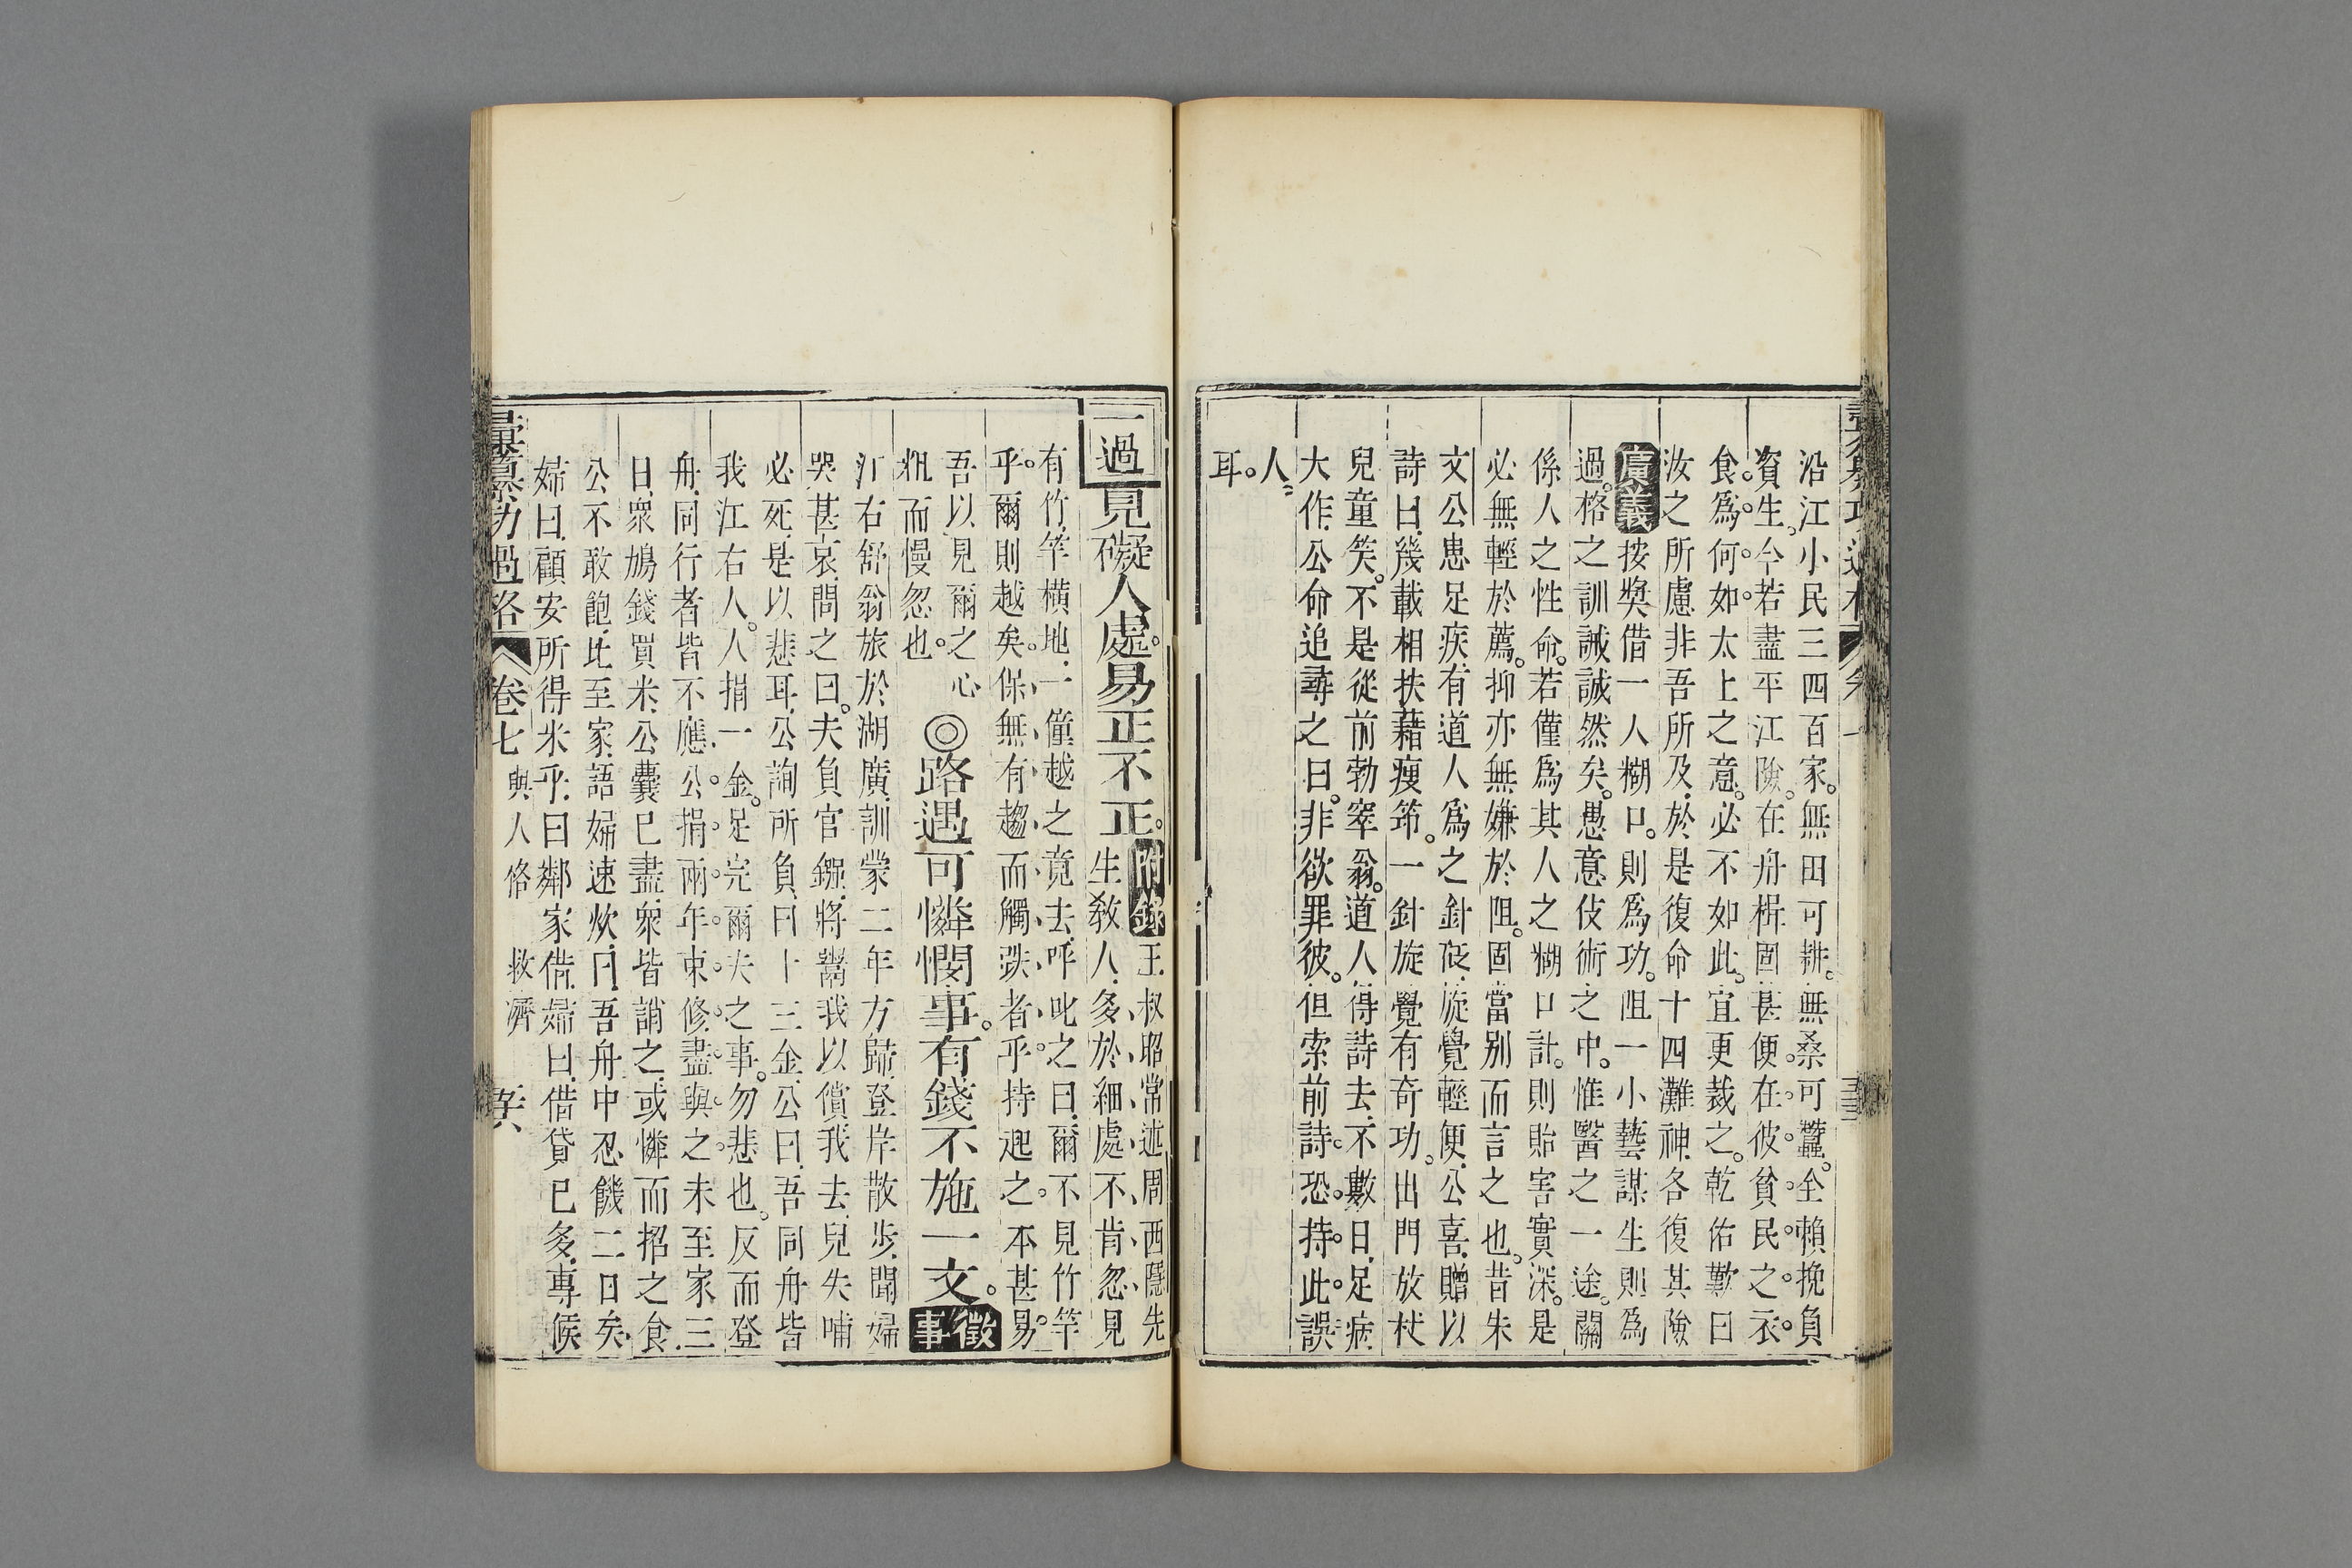 沿江小民三四百家。無田可耕。無桑可蠶。全賴挽負
資生。今若盡平江險。在舟楫固甚便。在彼貧民之衣。
食。爲何如。太上之意。必不如此。宜更裁之。乾佑歎曰
汝之所慮非吾所及。於是復命十四灘神。各復其險
廣義 按獎借一人糊口。則爲功。阻一小藝謀生則爲
過。格之訓誡誠然矣。愚意伎術之中。惟醫之一途。關
係人之性命。若僅爲其人之糊口計。則貽害實深。是
必無輕於薦。抑亦無嫌於阻。固當別而言之也。昔朱
文公患足疾。有道人爲之針砭。旋覺輕便。公喜。贈以
詩曰。幾載相扶藉瘦筇。一針旋覺有奇功。出門放杖
兒童笑。不是從前勃窣翁。道人得詩去。不數日。足病
大作。公命追尋之曰。非欲罪彼。但索前詩。恐持此誤
人
耳。
一過 見礙人處。易正不正。附錄 王叔昭常述周西隱先
生敎人。多於細處不肯忽見
有竹竿橫地。一僮越之竟去。呼叱之曰。爾不見竹竿
乎。爾則越矣。保無有趨而觸跌者乎。持起之。本甚易
吾以見爾之心
粗而慢忽也。
◎路遇可憐憫事。有錢不施一文。徵事
江右舒翁旅於湖廣。訓蒙二年方歸。登岸散步。聞婦
哭甚哀。問之曰。夫負官鏹。將鬻我以償。我去。兒失哺
必死。是以悲耳。公詢所負。曰十三金。公曰。吾同舟皆
我江右人。人捐一金。足完爾夫之事。勿悲也。反而登
舟。同行者皆不應。公捐兩年束修。盡與之。未至家三
日。衆鳩錢買米。公囊已盡。衆皆誚之。或憐而招之食
公不敢飽。比至家。語婦速炊。曰。吾舟中忍饑二日矣
婦曰。顧安所得米乎。曰鄰家借。婦曰。借貸已多。專候
彙纂功過格 卷七 與人格 救濟